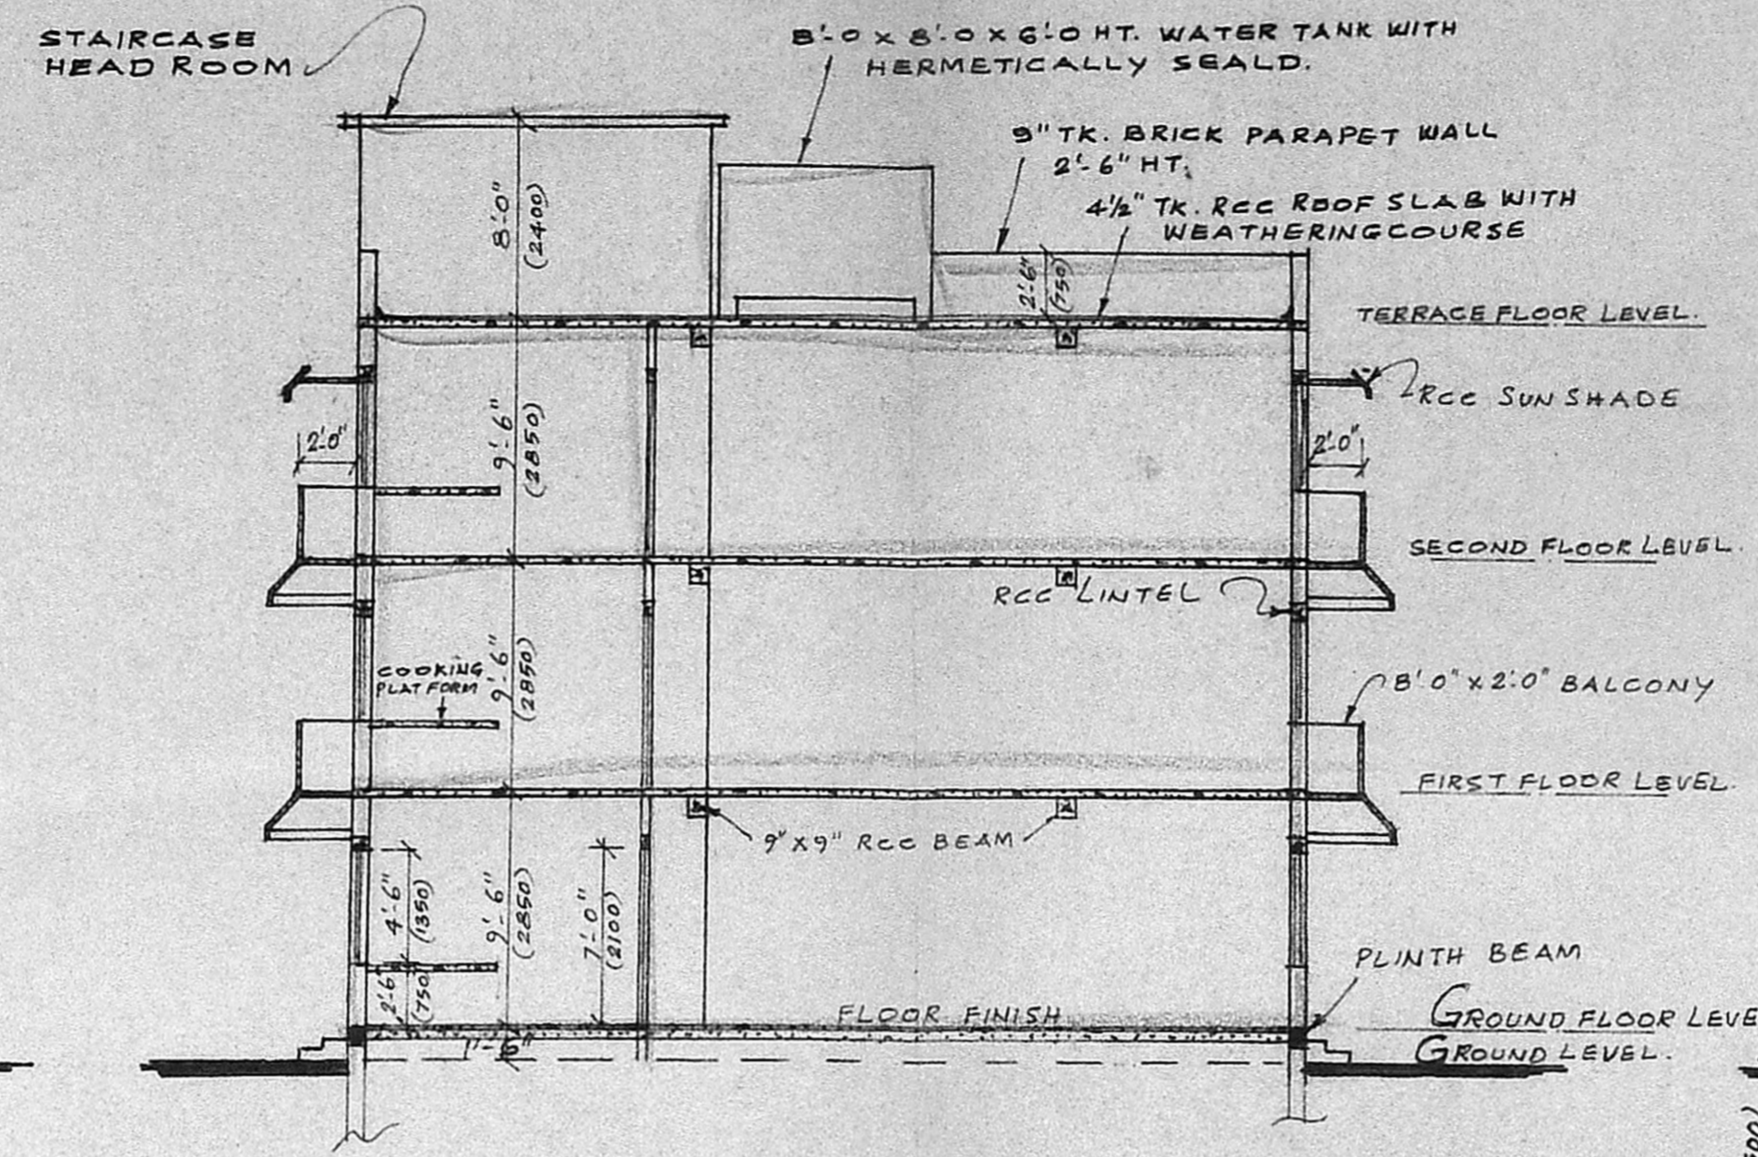 STAIRCASE
HEAD ROOM
8'-0 x 8'-0 x 6'-0 HT. WATER TANK WITH
HERMETICALLY SEALD.
9" TK. BRICK PARAPET WALL
2'-6" HT.
4½" TK. RCC ROOF SLAB WITH
WEATHERING COURSE
8'-0"
(2400)
2'-6"
(750)
TERRACE FLOOR LEVEL.
RCC SUN SHADE
2'-0"
9'-6"
(2850)
2'-0"
SECOND FLOOR LEVEL.
RCC LINTEL
COOKING
PLATFORM
9'-6"
(2850)
8'-0" x 2'-0" BALCONY
FIRST FLOOR LEVEL.
9" x 9" RCC BEAM
4'-6"
(1350)
9'-6"
(2850)
7'-0"
(2100)
2'-6"
(750)
PLINTH BEAM
FLOOR FINISH
GROUND FLOOR LEVE
1'-6"
GROUND LEVEL.